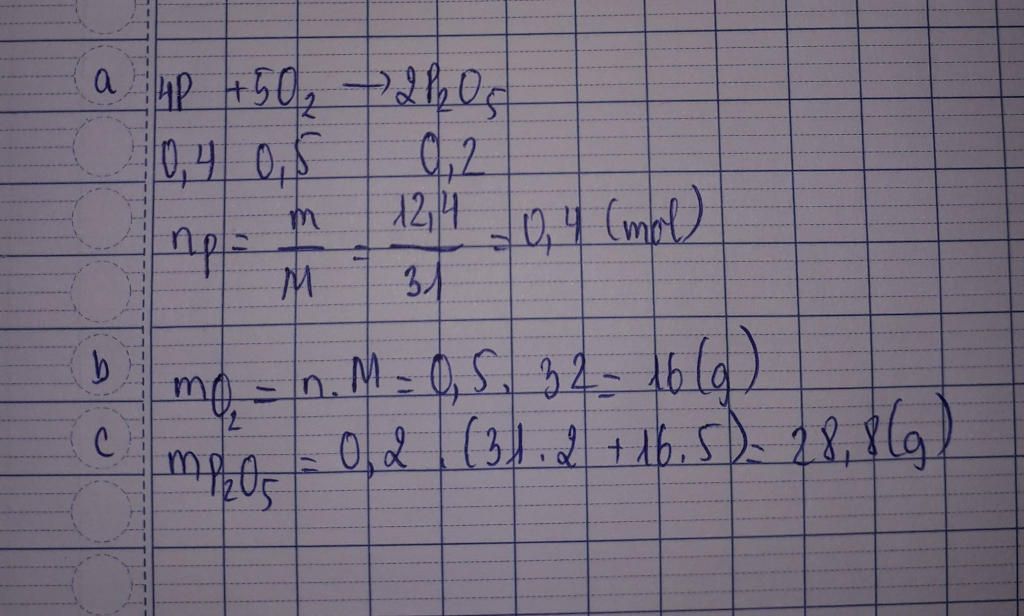 a 4P + 5O₂ → 2P₂O₅
0,4 0,5 0,2
nP = m/M = 12,4/31 = 0,4 (mol)
b mO₂ = n. M = 0,5. 32 = 16 (g)
c mP₂O₅ = 0,2 . (31.2 + 16.5) = 28,8 (g)